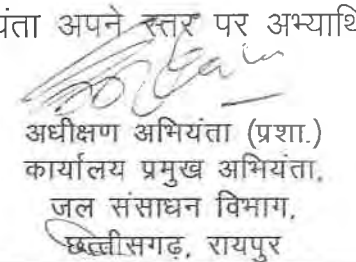 यंता अपने स्तर पर अभ्यार्थि
अधीक्षण अभियंता (प्रशा.)
कार्यालय प्रमुख अभियंता,
जल संसाधन विभाग,
छत्तीसगढ़, रायपुर